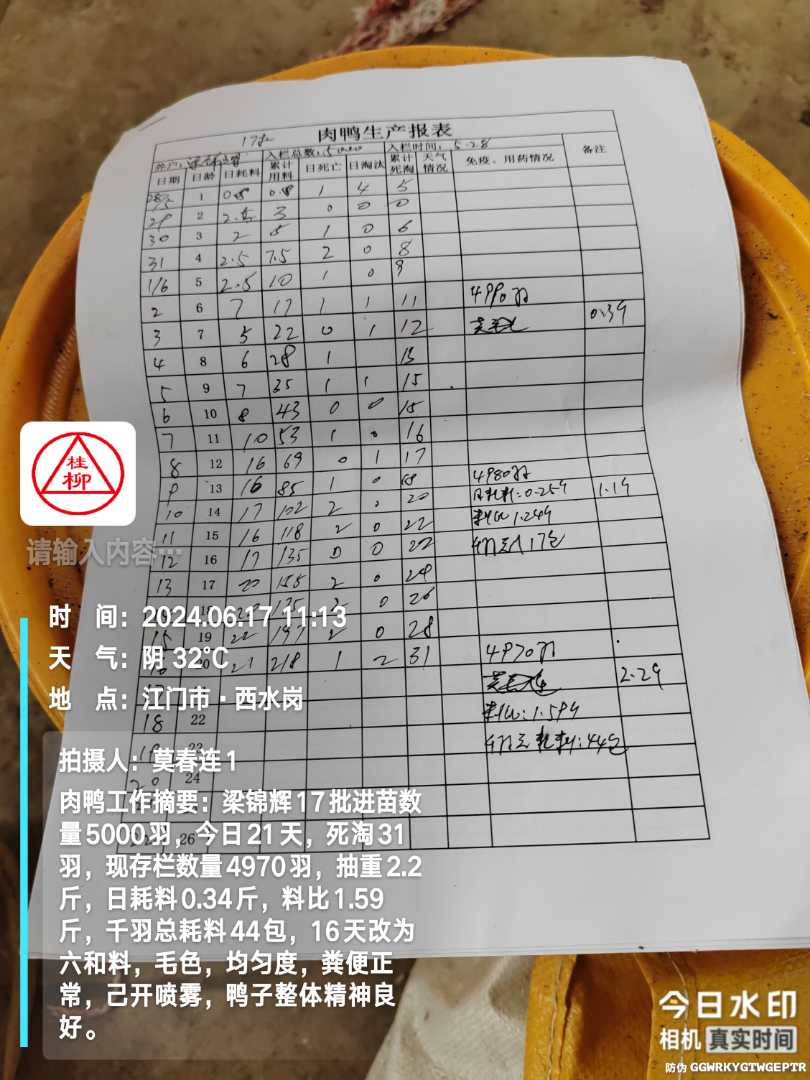 肉鸭生产报表
入栏总数：5000 入栏时间：5-28
日期 日龄 日耗料 累计用料 日死亡 日淘汰 累计死淘 天气情况 免疫、用药情况 备注
28/5 1 0.8 0.8 1 4 5
29 2 3 0 0 0
30 3 2 5 1 0 6
31 4 2.5 7.5 2 0 8
1/6 5 2.5 10 1 0 9
2 6 7 17 1 1 11 4990羽
3 7 5 22 0 1 12 0.39
4 8 6 28 1 13
5 9 7 35 1 1 15
6 10 8 43 0 0 15
7 11 10 53 1 0 16
8 12 16 69 0 1 17
9 13 16 85 1 0 4980羽
10 14 17 102 2 0 20 日耗料:0.25斤 1.1斤
11 15 16 118 2 0 22 料比1.24斤
12 16 17 135 0 0 22 17包
13 17 155 2 0 24
0 26
15 19 22 197 2 0 28
20 21 218 1 2 31 4970羽
2.2斤
18 22 料比:1.59斤
23 耗料:44包
24
26
桂柳
请输入内容…
时 间：2024.06.17 11:13
天 气：阴 32℃
地 点：江门市·西水岗
拍摄人：莫春连1
肉鸭工作摘要：梁锦辉17批进苗数
量5000羽，今日21天，死淘31
羽，现存栏数量4970羽，抽重2.2
斤，日耗料0.34斤，料比1.59
斤，千羽总耗料44包，16天改为
六和料，毛色，均匀度，粪便正
常，己开喷雾，鸭子整体精神良
好。
今日水印
相机 真实时间
防伪 GGWRKYGTWGEPTR